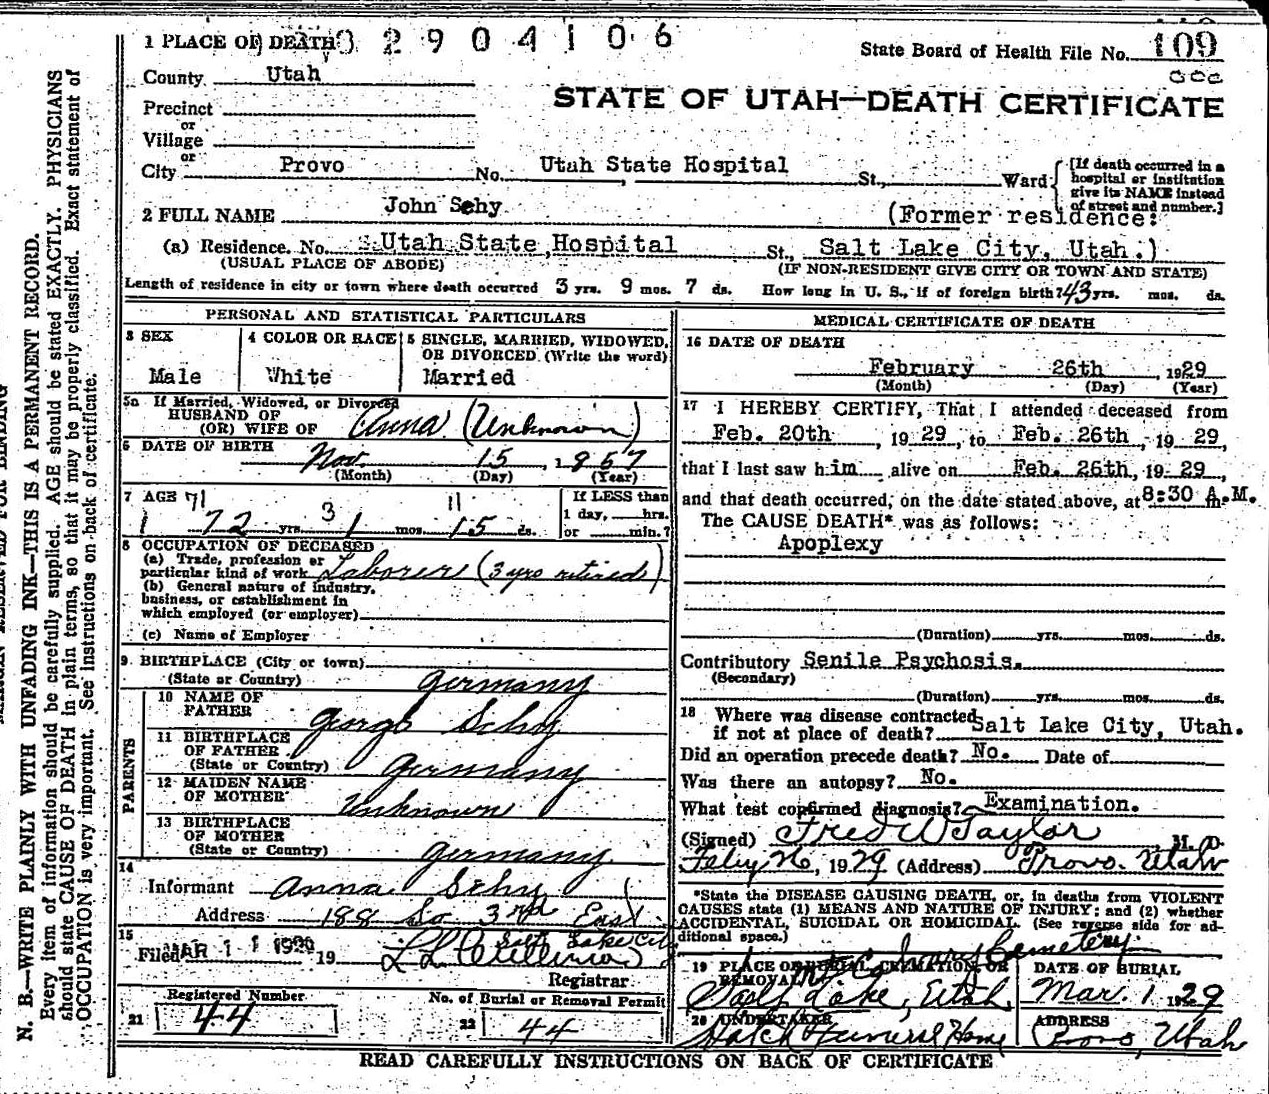 1 PLACE OF DEATH 0 2 9 0 4 1 0 6
State Board of Health File No. 109
County Utah
STATE OF UTAH—DEATH CERTIFICATE
Precinct
or
Village
or
City Provo No. Utah State Hospital St., Ward
[If death occurred in a
hospital or institution
give its NAME instead
of street and number.]
2 FULL NAME John Sehy (Former residence:
(a) Residence. No. Utah State Hospital St., Salt Lake City, Utah.)
(USUAL PLACE OF ABODE) (IF NON-RESIDENT GIVE CITY OR TOWN AND STATE)
Length of residence in city or town where death occurred 3 yrs. 9 mos. 7 ds. How long in U. S., if of foreign birth? 43 yrs. mos. ds.
PERSONAL AND STATISTICAL PARTICULARS
3 SEX
Male
4 COLOR OR RACE
White
5 SINGLE, MARRIED, WIDOWED,
OR DIVORCED (Write the word)
Married
5a If Married, Widowed, or Divorced
HUSBAND OF
(OR) WIFE OF Anna (Unknown)
6 DATE OF BIRTH
Nov. 15, 1857
(Month) (Day) (Year)
7 AGE 71 3 11
72 yrs. 1 mos. 15 ds.
If LESS than
1 day, hrs.
or min.?
8 OCCUPATION OF DECEASED
(a) Trade, profession or
particular kind of work Laborer (3 yrs retired)
(b) General nature of industry,
business, or establishment in
which employed (or employer)
(c) Name of Employer
9 BIRTHPLACE (City or town)
(State or Country) Germany
PARENTS
10 NAME OF
FATHER George Sehy
11 BIRTHPLACE
OF FATHER
(State or Country) Germany
12 MAIDEN NAME
OF MOTHER Unknown
13 BIRTHPLACE
OF MOTHER
(State or Country) Germany
14
Informant Anna Sehy
Address 188 So 3rd East
Salt Lake City
15
Filed MAR 11 1929 19
Registrar
Registered Number
21 44
No. of Burial or Removal Permit
22 44
MEDICAL CERTIFICATE OF DEATH
16 DATE OF DEATH
February 26th 1929
(Month) (Day) (Year)
17 I HEREBY CERTIFY, That I attended deceased from
Feb. 20th, 1929, to Feb. 26th, 1929,
that I last saw him alive on Feb. 26th, 1929,
and that death occurred, on the date stated above, at 8:30 A.M.
The CAUSE DEATH* was as follows:
Apoplexy
(Duration) yrs. mos. ds.
Contributory Senile Psychosis.
(Secondary)
(Duration) yrs. mos. ds.
18 Where was disease contracted
if not at place of death? Salt Lake City, Utah.
Did an operation precede death? No. Date of
Was there an autopsy? No.
What test confirmed diagnosis? Examination.
(Signed) Fred W Taylor M. D.
Feby 26, 1929 (Address) Provo Utah
*State the DISEASE CAUSING DEATH, or, in deaths from VIOLENT
CAUSES state (1) MEANS AND NATURE OF INJURY; and (2) whether
ACCIDENTAL, SUICIDAL OR HOMICIDAL. (See reverse side for ad-
ditional space.)
19 PLACE OF BURIAL, CREMATION, OR
REMOVAL
Cemetery
Salt Lake, Utah
DATE OF BURIAL
Mar. 1 1929
20 UNDERTAKER
Hatch Funeral Home
ADDRESS
Provo, Utah
READ CAREFULLY INSTRUCTIONS ON BACK OF CERTIFICATE
N. B.—WRITE PLAINLY WITH UNFADING INK—THIS IS A PERMANENT RECORD.
Every item of information should be carefully supplied. AGE should be stated EXACTLY. PHYSICIANS
should state CAUSE OF DEATH in plain terms, so that it may be properly classified. Exact statement of
OCCUPATION is very important. See instructions on back of certificate.